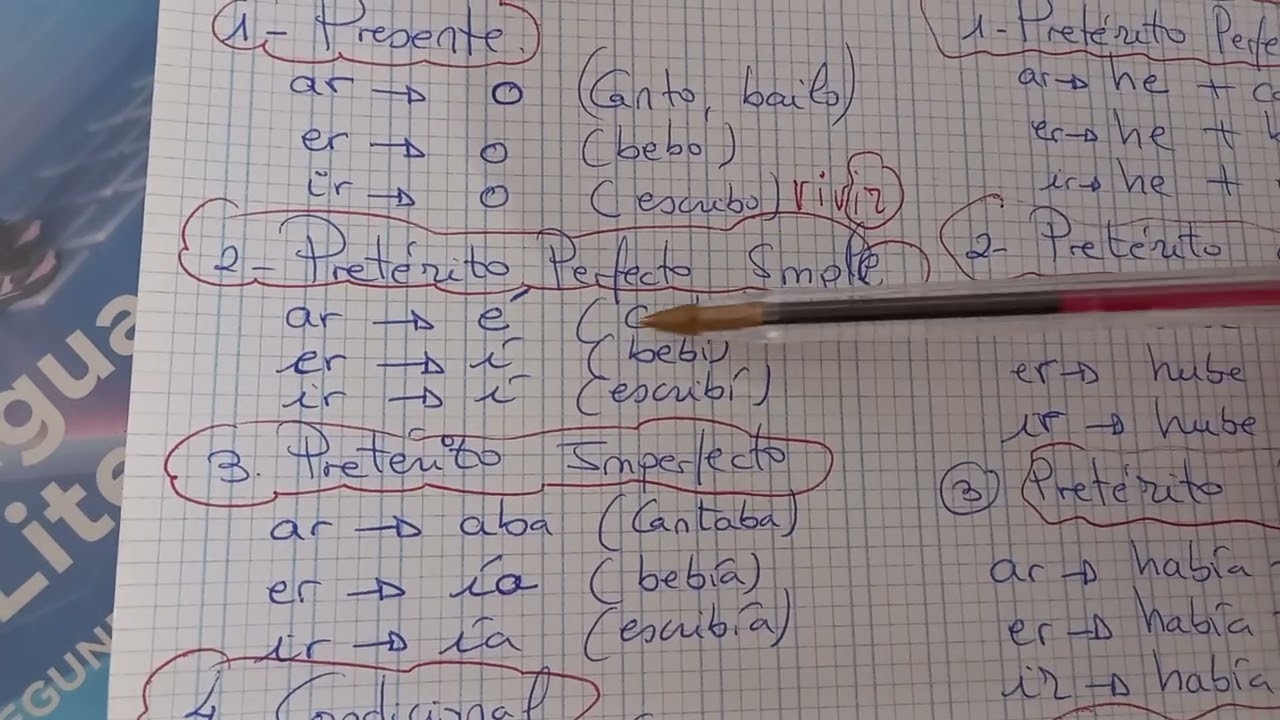 1- Presente.
ar → o (Canto, bailo)
er → o (bebo)
ir → o (escribo) vivir
2- Pretérito Perfecto Smple
ar → é (C
er → í (bebí)
ir → í (escribí)
3. Pretérito Imperfecto
ar → aba (Cantaba)
er → ía (bebía)
ir → ía (escribía)
4 Condicional
1- Pretérito Perfe
ar → he + ca
er → he +
ir → he +
2- Pretérito
er → hube
ir → hube
3 Pretérito
ar → había
er → había
ir → había
gua
Lite
EGUN